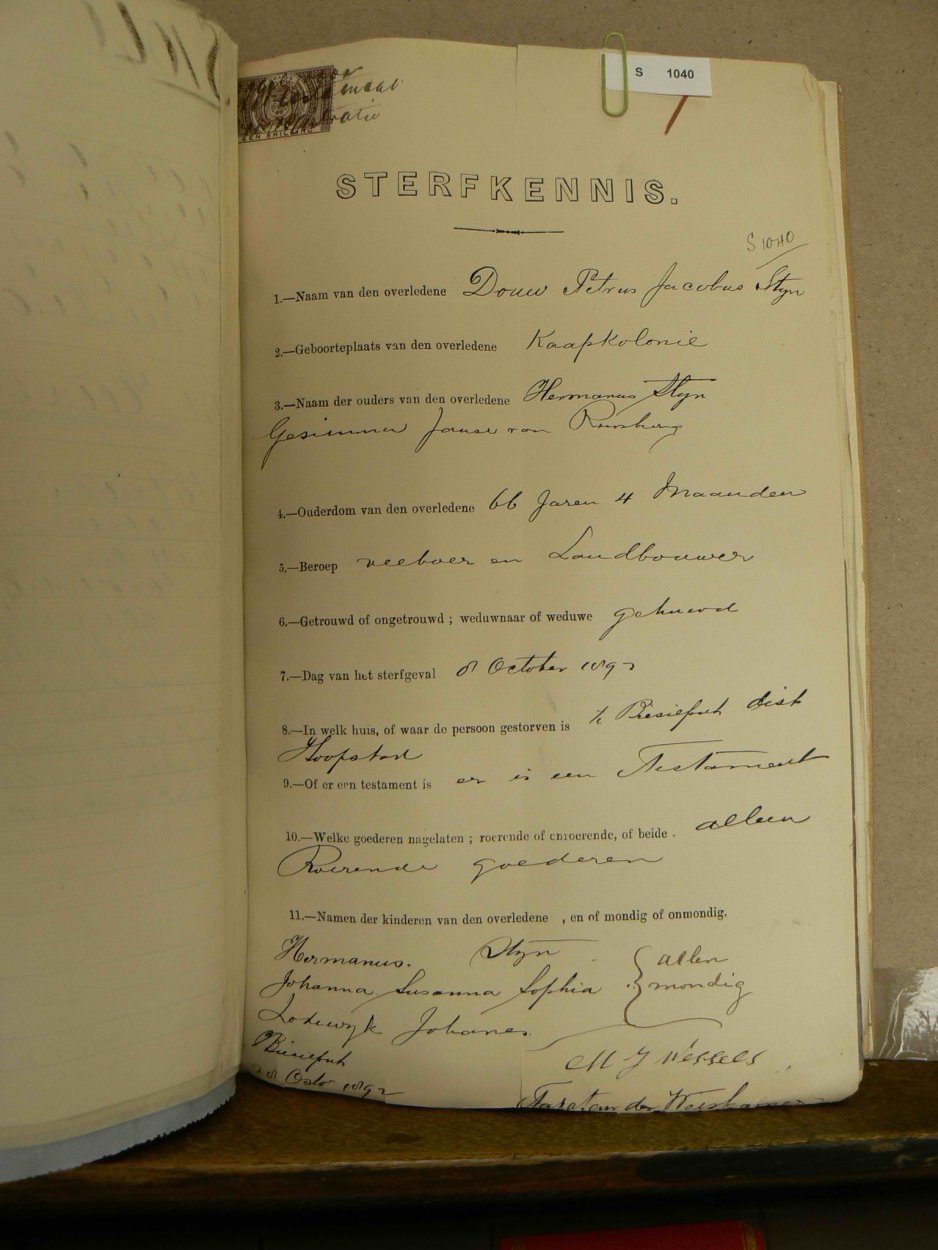 S 1040
EEN SHILLING
STERFKENNIS.
S 1040
1.—Naam van den overledene Douw Petrus Jacobus Styn
2.—Geboorteplaats van den overledene Kaapkolonie
3.—Naam der ouders van den overledene Hermanus Styn
Gesinna Janse van Rensberg
4.—Ouderdom van den overledene 66 Jaren 4 Maanden
5.—Beroep veeboer en Landbouwer
6.—Getrouwd of ongetrouwd ; weduwnaar of weduwe gehuwd
7.—Dag van het sterfgeval 8 October 1892
8.—In welk huis, of waar de persoon gestorven is dist
Hoopstad
9.—Of er een testament is er is een Testament
10.—Welke goederen nagelaten ; roerende of onroerende, of beide . alleen
Roerende goederen
11.—Namen der kinderen van den overledene , en of mondig of onmondig.
Hermanus. Styn
allen
Johanna Susanna Sophia
mondig
Lodewyk Johanes
M J Wessels
28 Octo 1892
der Weeskamer